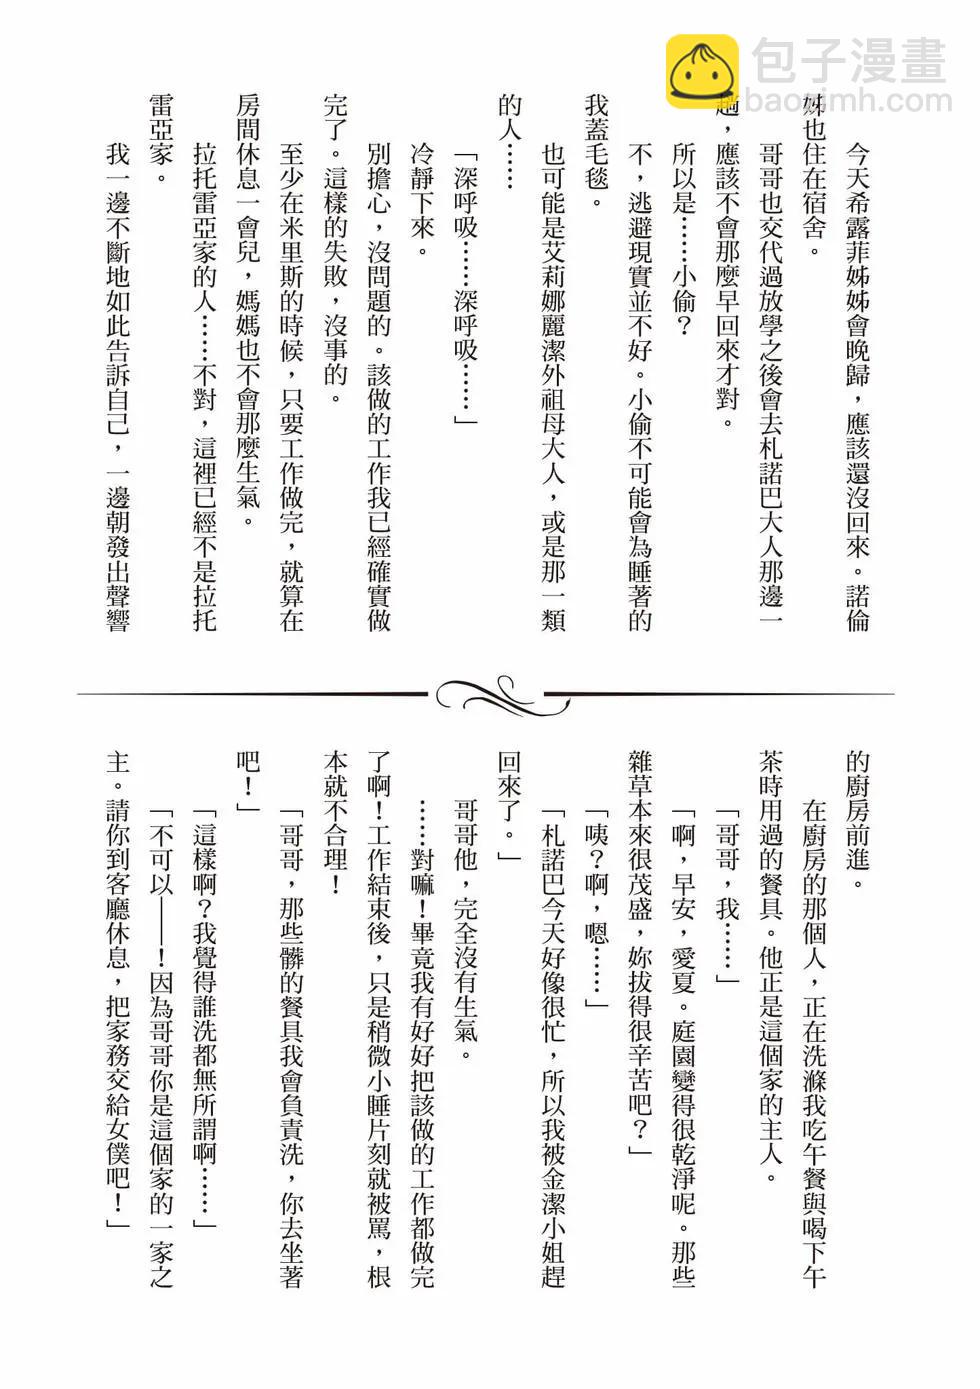 包子漫畫
baozimh.com
今天希露菲姊姊會晚歸，應該還沒回來。諾倫
姊也住在宿舍。
哥哥也交代過放學之後會去札諾巴大人那邊一
趟，應該不會那麼早回來才對。
所以是……小偷？
不，逃避現實並不好。小偷不可能會為睡著的
我蓋毛毯。
也可能是艾莉娜麗潔外祖母大人，或是那一類
的人……
「深呼吸……深呼吸……」
冷靜下來。
別擔心，沒問題的。該做的工作我已經確實做
完了。這樣的失敗，沒事的。
至少在米里斯的時候，只要工作做完，就算在
房間休息一會兒，媽媽也不會那麼生氣。
拉托雷亞家的人……不對，這裡已經不是拉托
雷亞家。
我一邊不斷地如此告訴自己，一邊朝發出聲響
的廚房前進。
在廚房的那個人，正在洗滌我吃午餐與喝下午
茶時用過的餐具。他正是這個家的主人。
「哥哥，我……」
「啊，早安，愛夏。庭園變得很乾淨呢。那些
雜草本來很茂盛，妳拔得很辛苦吧？」
「咦？啊，嗯……」
「札諾巴今天好像很忙，所以我被金潔小姐趕
回來了。」
哥哥他，完全沒有生氣。
……對嘛！畢竟我有好好把該做的工作都做完
了啊！工作結束後，只是稍微小睡片刻就被罵，根
本就不合理！
「哥哥，那些髒的餐具我會負責洗，你去坐著
吧！」
「這樣啊？我覺得誰洗都無所謂啊……」
「不可以——！因為哥哥你是這個家的一家之
主。請你到客廳休息，把家務交給女僕吧！」